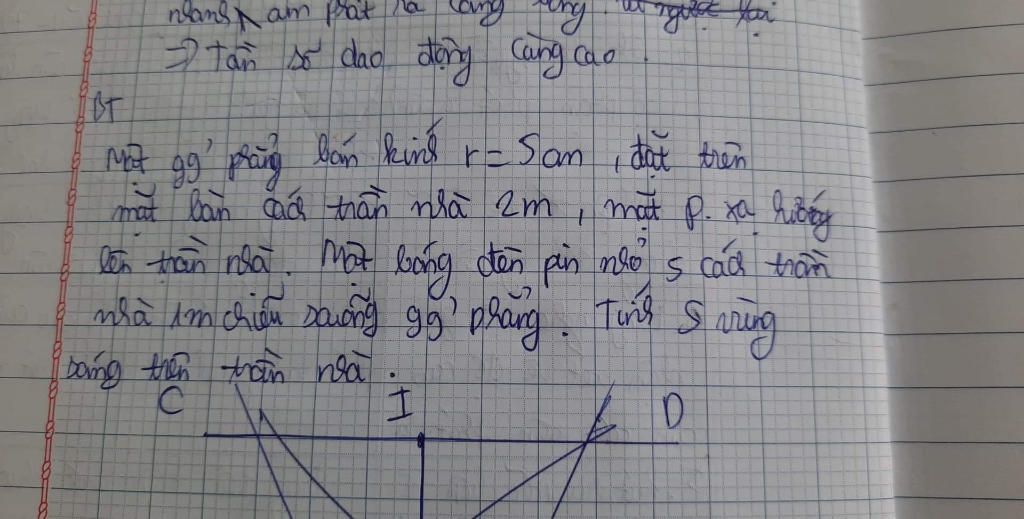 âm phát ra càng
=> tần số dao động càng cao
BT
Một gg' phẳng bán kính r = 5cm, đặt trên
mặt bàn cách trần nhà 2m, mặt p. xạ hướng
lên trần nhà. Một bóng đèn pin nhỏ S cách trần
nhà 1m chiếu xuống gg' phẳng. Tính S vùng
sáng trên trần nhà.
C I D